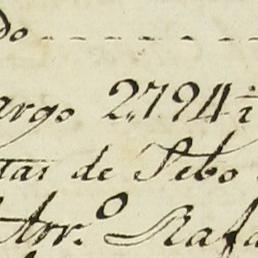 do - - - - - - - -
argo 2,,794 1/2
tas de Sebo
Arr.º Rafa